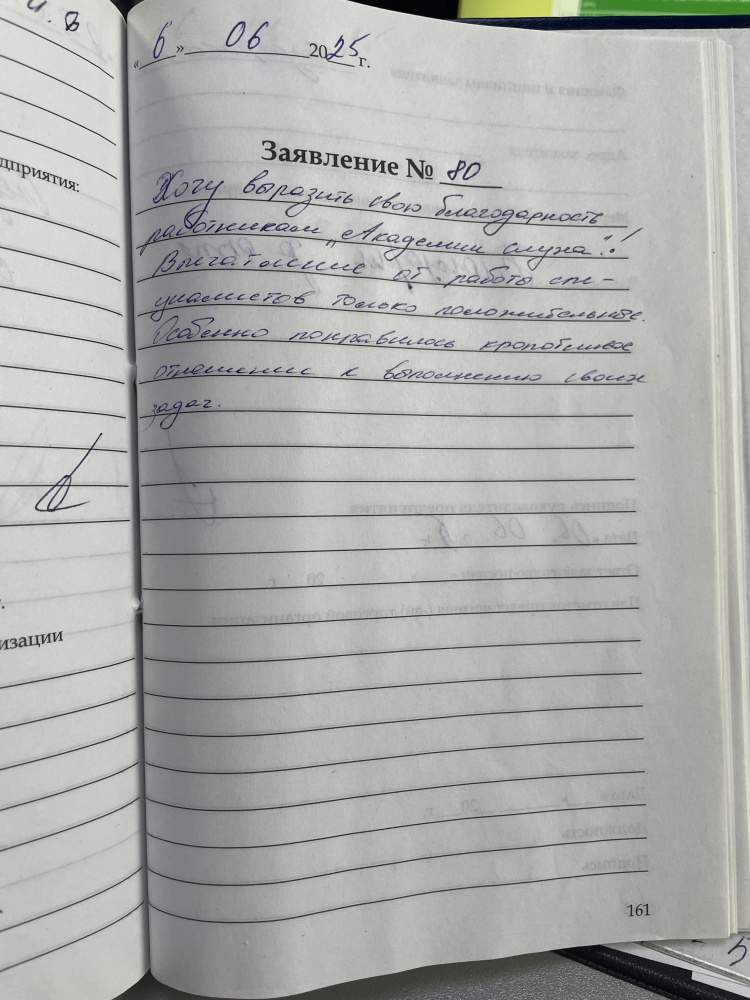 и. в
едприятия:
изации
« 6 » 06 2025 г.
Заявление № 80
Хочу выразить свою благодарность
работникам „Академии слуха“!
Впечатление от работы спе-
циалистов только положительные.
Особенно понравилось кропотливое
отношение к выполнению своих
задач.
161
5